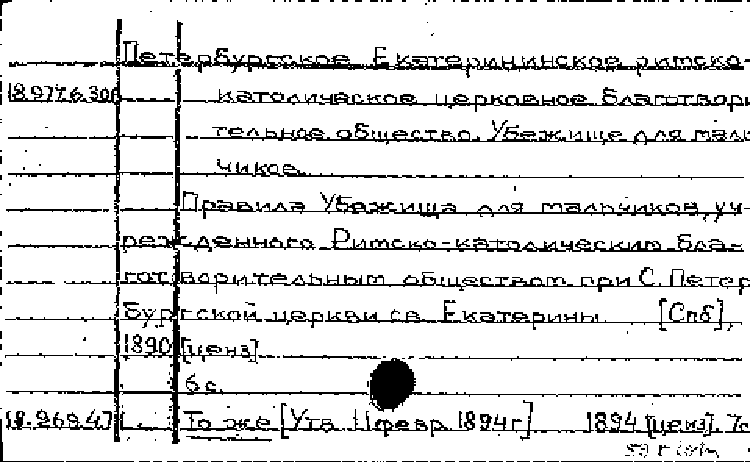 Петербургское Екатерининское римско-
18.977.6.306 католическое церковное благотвори
тельное общество. Убежище для маль
чиков.
Правила Убежища для мальчиков, уч-
режденного Римско-католическим бла-
готворительным обществом при С. Петер
бургской церкви св. Екатерины [Спб],
1890 [ценз].
6 с.
18.269.4 То же [Утв. 11 февр. 1894 г] 1894 [ценз]. 7с